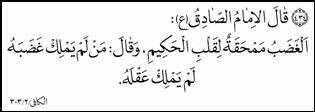 ﴿٤٣١﴾ قَالَ الإِمَامُ الصَّادِقُ (ع):
اَلْغَضَبُ مَمْحَقَةٌ لِقَلْبِ الْحَكِيمِ، وَقَالَ: مَنْ لَمْ يَمْلِكْ غَضَبَهُ
لَمْ يَمْلِكْ عَقْلَهُ.
الكافي ٣٠٣/٢